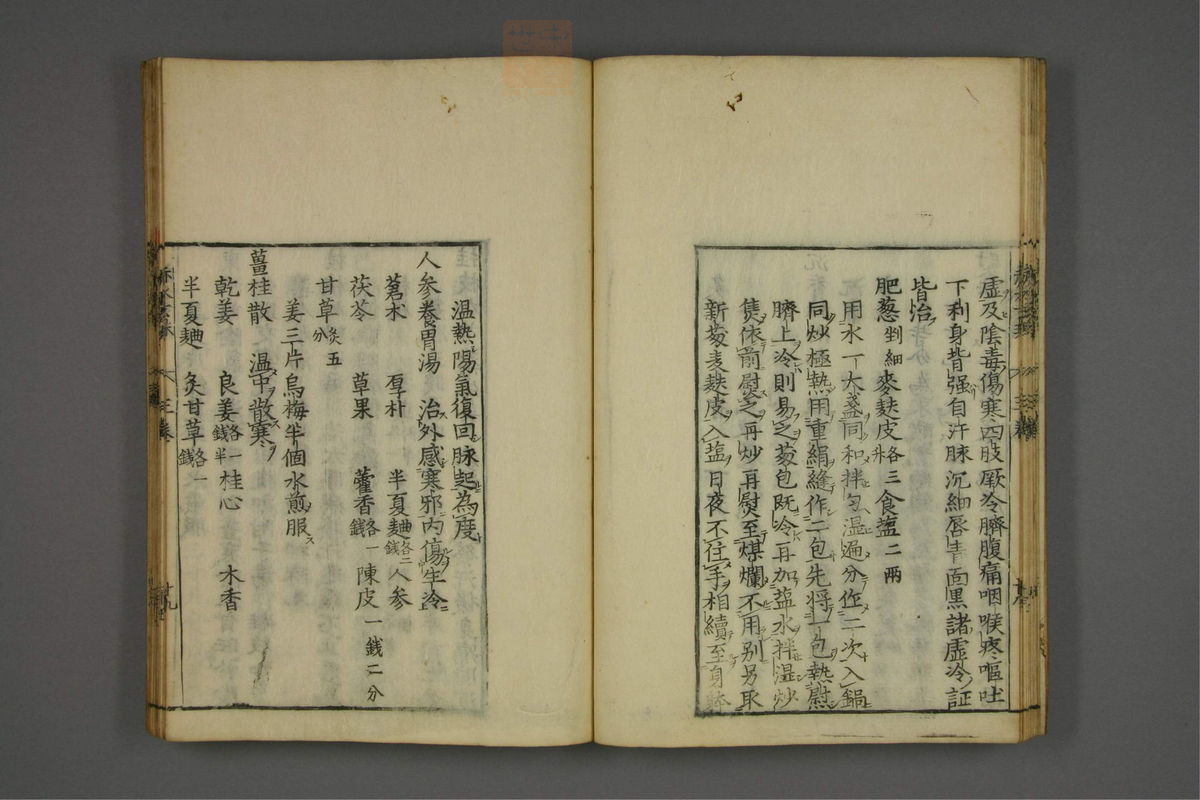 虚及陰毒傷寒四肢厥冷臍腹痛咽喉疼嘔吐
下利身背强自汗脉沉細唇青面黒諸虚冷証
皆治
肥葱剉細麥麩皮各三升食塩二兩
用水一大盞同和拌匀湿遍分作二次入鍋
同炒極熱用重絹縫作二包先将一包熱慰
臍上冷則易之葱包既冷再加塩水拌湿炒
隻依前慰之再炒再熨至煤爛不用別另取
新葱麦麩皮入塩日夜不住手相續至身躰
温熱陽氣復回脉起為度
人参養胃湯 治外感寒邪内傷生冷
茗朮 厚朴 半夏麯各二錢人参
茯苓 草果 藿香各一錢陳皮一錢二分
甘草炙五分
姜三片烏梅半個水煎服
薑桂散 温中散寒
乾姜 良姜各一錢半桂心 木香
半夏麯 炙甘草各一錢